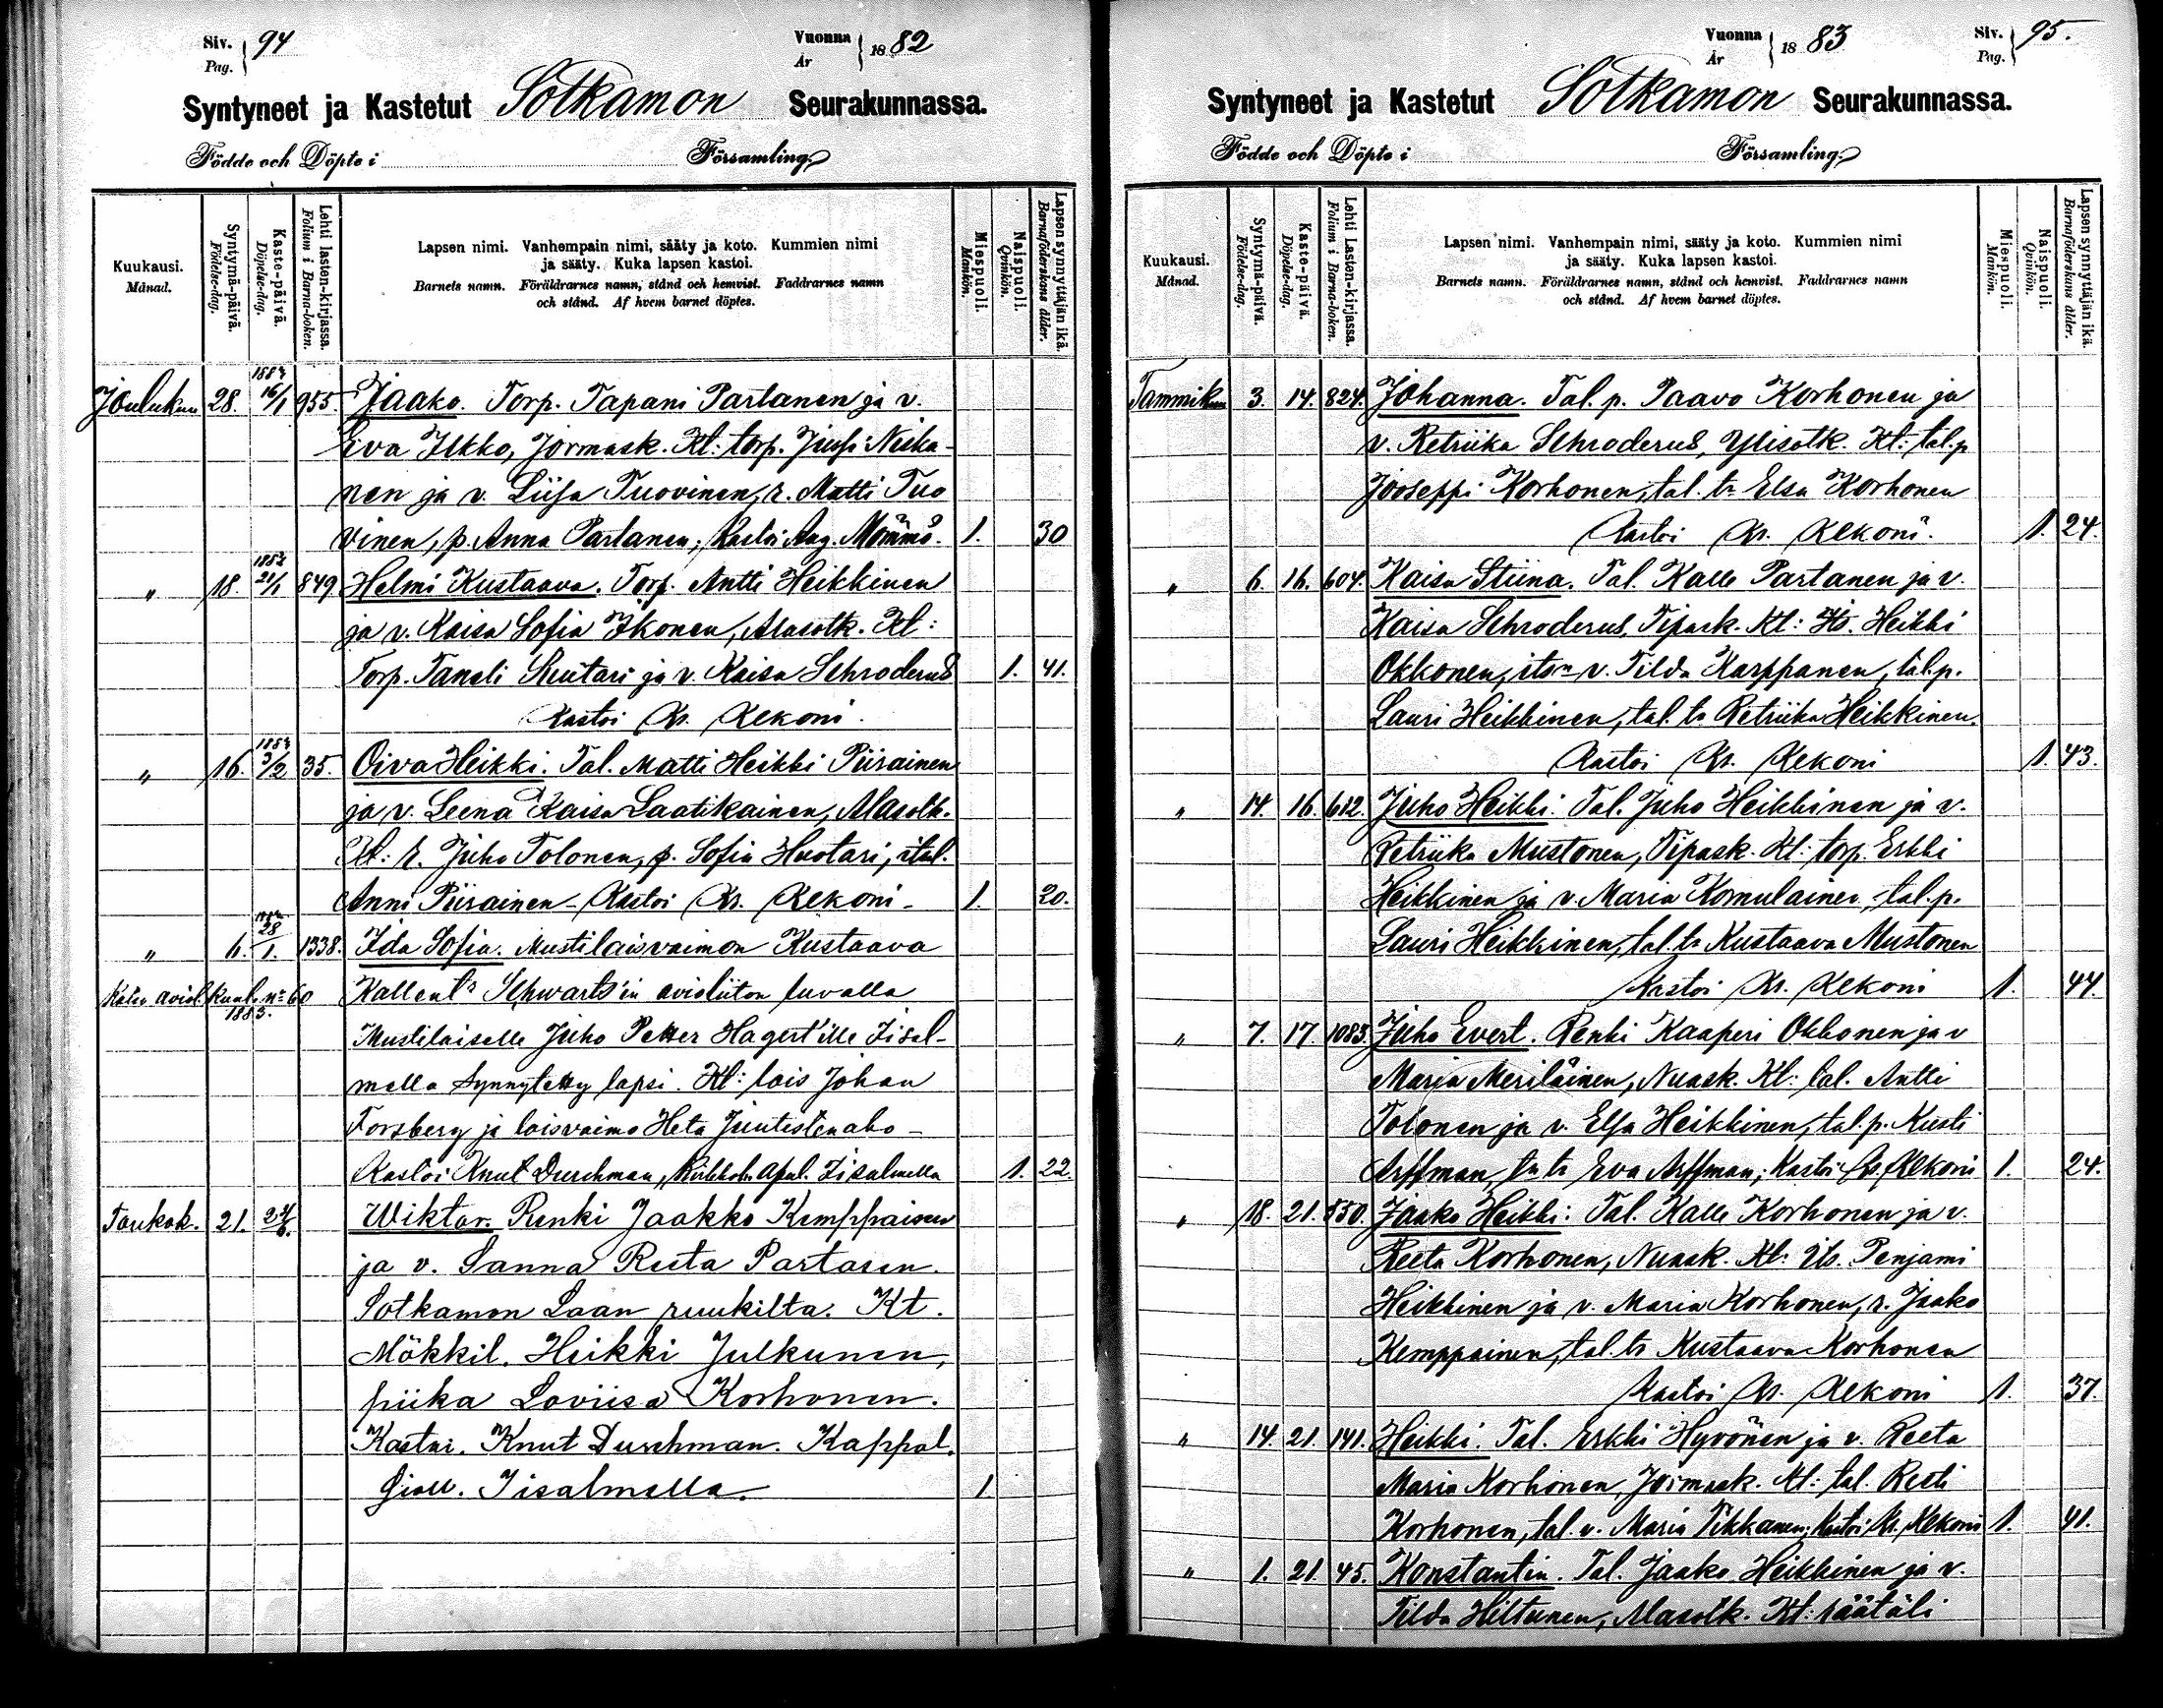 Siv. 94
Pag.
Vuonna 1882
År
Syntyneet ja Kastetut Sotkamon Seurakunnassa.
Födde och Döpte i Församling.
Kuukausi.
Månad.
Syntymä-päivä.
Födelse-dag.
Kaste-päivä.
Döpelse-dag.
Lehti lasten-kirjassa.
Folium i Barna-boken.
Lapsen nimi. Vanhempain nimi, sääty ja koto. Kummien nimi
ja sääty. Kuka lapsen kastoi.
Barnets namn. Föräldrarnes namn, stånd och hemvist. Faddrarnes namn
och stånd. Af hvem barnet döptes.
Miespuoli.
Mankön.
Naispuoli.
Qvinkön.
Lapsen synnyttäjän ikä.
Barnaföderskans ålder.
1883
Joulukuu 28. 16/1 955. Jaako. Torp. Tapani Partanen ja v.
Eva Ilkko, Jormask. Kt: torp. Jussi Niska-
nen ja v. Liisa Tuovinen, r. Matti Tuo
vinen, p. Anna Partanen; Kastoi Aug. Mömmö. 1. 30
1883
" 18. 21/1 849 Helmi Kustaava. Torp. Antti Heikkinen
ja v. Kaisa Sofia Ikonen, Alasotk. Kt:
Torp. Taneli Huttari ja v. Kaisa Schroderus 1. 41.
Kastoi Kr. Rekoni.
1883
" 16. 3/2 35. Oiva Heikki. Tal. Matti Heikki Piirainen
ja v. Leena Kaisa Laatikainen, Alasotk.
Kt: r. Juho Tolonen, p. Sofia Huotari, ital.
Anni Piirainen - Kastoi Kr. Rekoni - 1. 20.
1883
28
" 6. 1. 1338. Ida Sofia. Mustilaisvaimon Kustaava
Katso aviol. kuul. n:o 60 Kallent:r Schwarts'in avioliiton luvalla
1883.
Mustilaiselle Juho Petter Hagert'ille Iisal-
mella synnytetty lapsi. Kt: lois Johan
Forsberg ja loisvaimo Heta Juutistenaho -
Kastoi Knut Durchman, Kirkkoh. apul. Iisalmella 1. 22.
Toukok. 21. Wiktor. Renki Jaakko Kemppaisen
ja v. Sanna Reeta Partasen.
Sotkamon Laan ruukilta. Kt.
Mökkil. Heikki Julkunen,
piika Loviisa Korhonen.
Kastoi. Knut Durchman. Kappal.
Iisalmella. 1
Vuonna 1883
År
Siv. 95.
Pag.
Syntyneet ja Kastetut Sotkamon Seurakunnassa.
Födde och Döpte i Församling.
Kuukausi.
Månad.
Syntymä-päivä.
Födelse-dag.
Kaste-päivä.
Döpelse-dag.
Lehti Lasten-kirjassa.
Folium i Barna-boken.
Lapsen nimi. Vanhempain nimi, sääty ja koto. Kummien nimi
ja sääty. Kuka lapsen kastoi.
Barnets namn. Föräldrarnes namn, stånd och hemvist. Faddrarnes namn
och stånd. Af hvem barnet döptes.
Miespuoli.
Mankön.
Naispuoli.
Qvinkön.
Lapsen synnyttäjän ikä.
Barnaföderskans ålder.
Tammikuu 3. 14. 824. Johanna. Tal. p. Paavo Korhonen ja
v. Retriika Schroderus, Ylisotk. Kt: tal. p
Jooseppi Korhonen, tal. tr Elsa Korhonen
Kastoi Kr. Rekoni. 1. 24.
" 6. 16. 604. Kaisa Stiina. Tal. Kalle Partanen ja v.
Kaisa Schroderus, Tipask. Kt: Its. Heikki
Okkonen, its:n v. Tilda Karppanen, tal. p.
Lauri Heikkinen, tal. tr Retriika Heikkinen.
Kastoi Kr. Rekoni 1. 43.
" 14. 16. 612. Juho Heikki: Tal. Juho Heikkinen ja v.
Retriika Mustonen, Tipask. Kt: torp. Erkki
Heikkinen ja v. Maria Komulainen, tal. p.
Lauri Heikkinen, tal. tr Kustaava Mustonen
Kastoi Kr. Rekoni 1. 44.
" 7. 17. 1083. Juho Evert. Renki Kaaperi Okkonen ja v
Maria Meriläinen, Nuask. Kt: tal. Antti
Tolonen ja v. Elsa Heikkinen, tal. p. Kusti
Arffman, tr Eva Arffman; Kastoi Kr. Rekoni 1. 24.
" 18. 21. 550. Jaako Heikki: Tal. Kalle Korhonen ja v.
Reeta Korhonen, Nuask. Kt: Its. Penjami
Heikkinen ja v. Maria Korhonen, r. Jaako
Kemppainen, tal. tr Kustaava Korhonen
Kastoi Kr. Rekoni 1. 37.
" 14. 21. 141. Heikki. Tal. Erkki Hyvönen ja v. Reeta
Maria Korhonen, Jormask. Kt: tal. Resti
Korhonen, tal. v. Maria Tikkanen; Kastoi Kr. Rekoni 1. 41.
" 1. 21. 45. Konstantin. Tal. Jaako Heikkinen ja v.
Tilda Hiltunen, Alasotk. Kt: räätäli